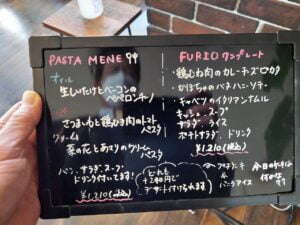 PASTA MENE
オイル
生しいたけとベーコンの
ペペロンチーノ
さつまいもと鶏ひき肉のトマト
パスタ
クリーム
菜の花とあさりのクリーム
パスタ
パン、サラダ、スープ
ドリンク付いてます!
¥1,210(税込)
どれも
+290円で
デザート付けられます
FURIO ワンプレート
・鶏むね肉のカレーチーズ
・かぼちゃのバターハニーソテー
・キャベツのイタリアンナムル
キッシュ スープ
サラダ ライス
プチドリンク
¥1,210(税込)
&
バニラアイス